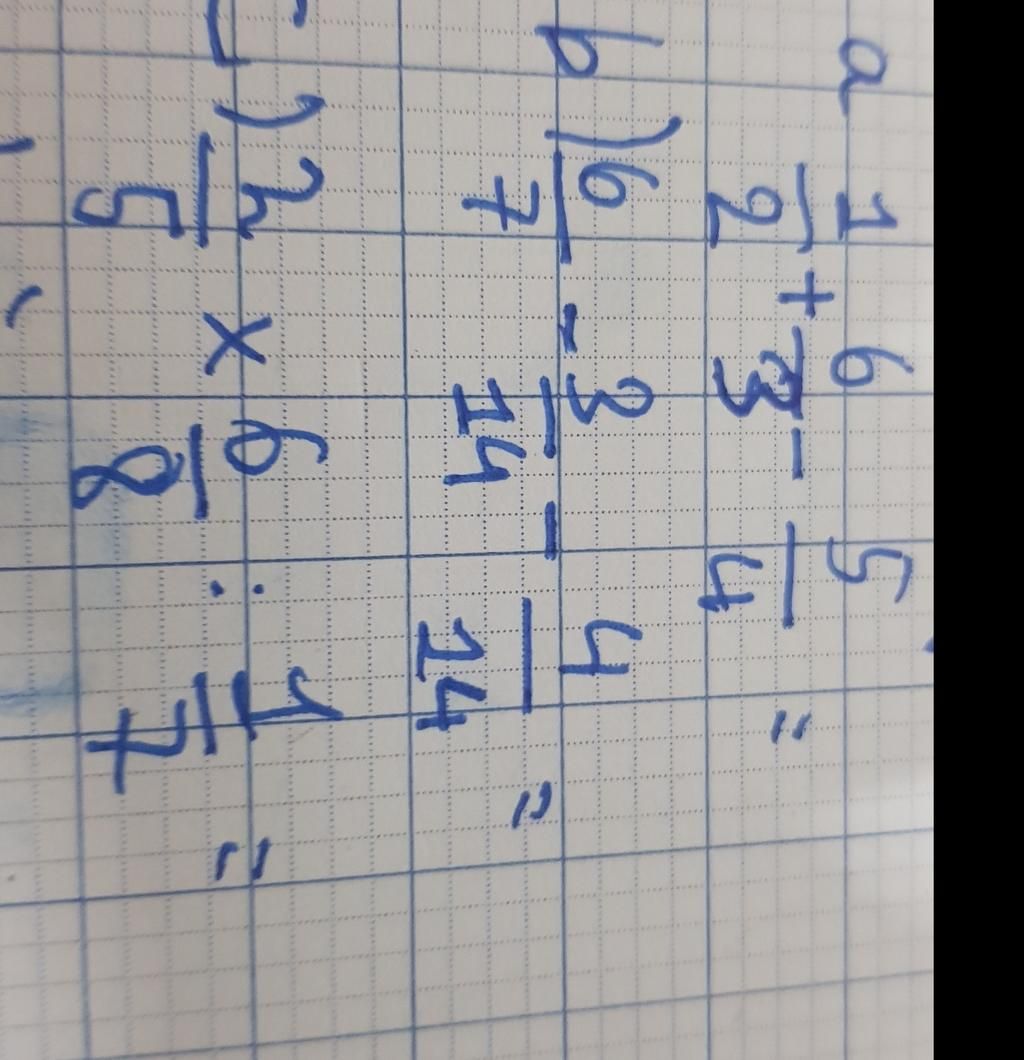 a 1/2 + 6/3 - 5/4 =
b) 6/7 - 3/14 - 4/14 =
c) 3/5 x 6/8 : 1/7 =